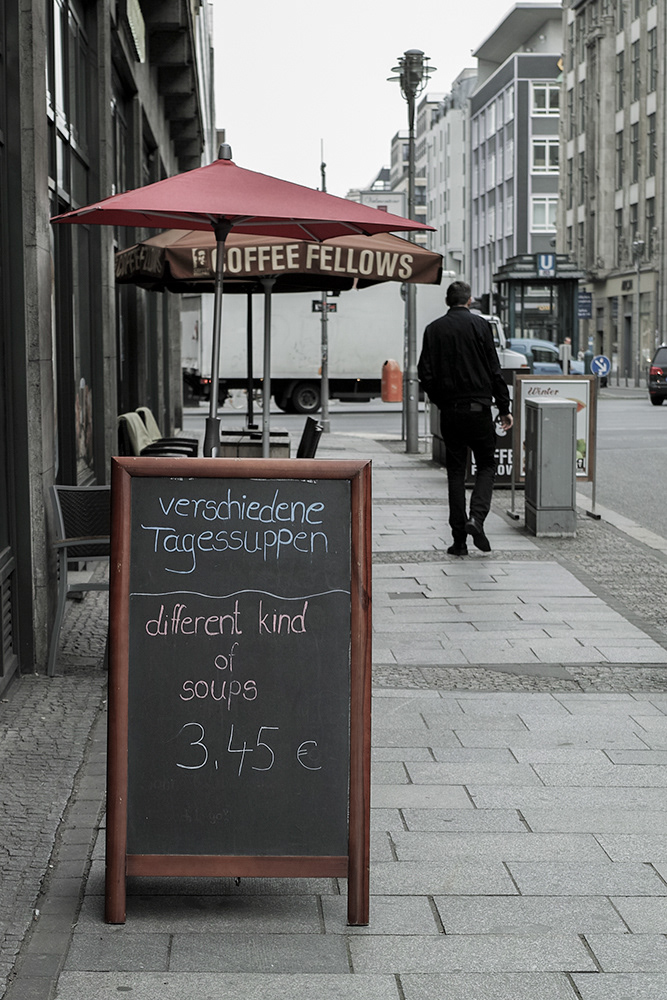 verschiedene
Tagessuppen
different kind
of
soups
3.45 €
COFFEE FELLOWS
U
Winter